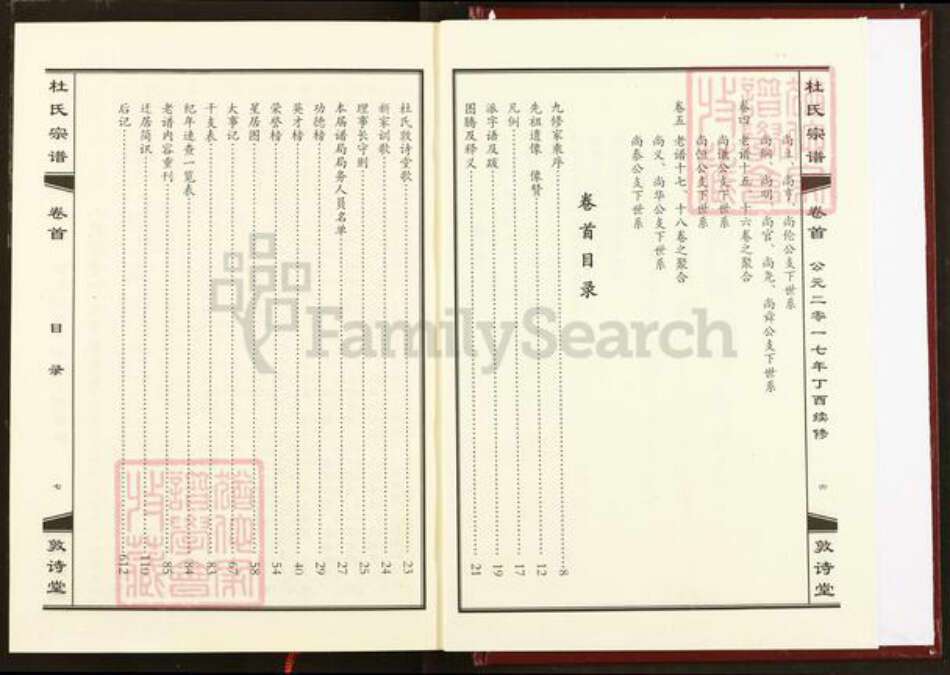 杜氏宗谱
卷首
公元二零一七年丁酉续修
六
敦诗堂
尚亨、尚伦公支下世系
尚明、尚官、尚尧、尚舜公支下世系
卷四 老谱十五、十六卷之聚合
公支下世系
尚恒公支下世系
卷五 老谱十七、十八卷之聚合
尚义、尚华公支下世系
尚泰公支下世系
卷首目录
九修家乘序 8
先祖遗像 像赞 12
凡例 17
派字语及跋 19
图腾及释义 21
杜氏敦诗堂歌 23
新家训歌 24
理事长守则 25
本届谱局局务人员名单 27
功德榜 29
英才榜 40
荣登榜 54
星居图 58
大事记 67
干支表 83
纪年速查一览表 84
老谱内容重刊 85
迁居简讯 110
后记 612
杜氏宗谱
卷首
目录
七
敦诗堂
FamilySearch